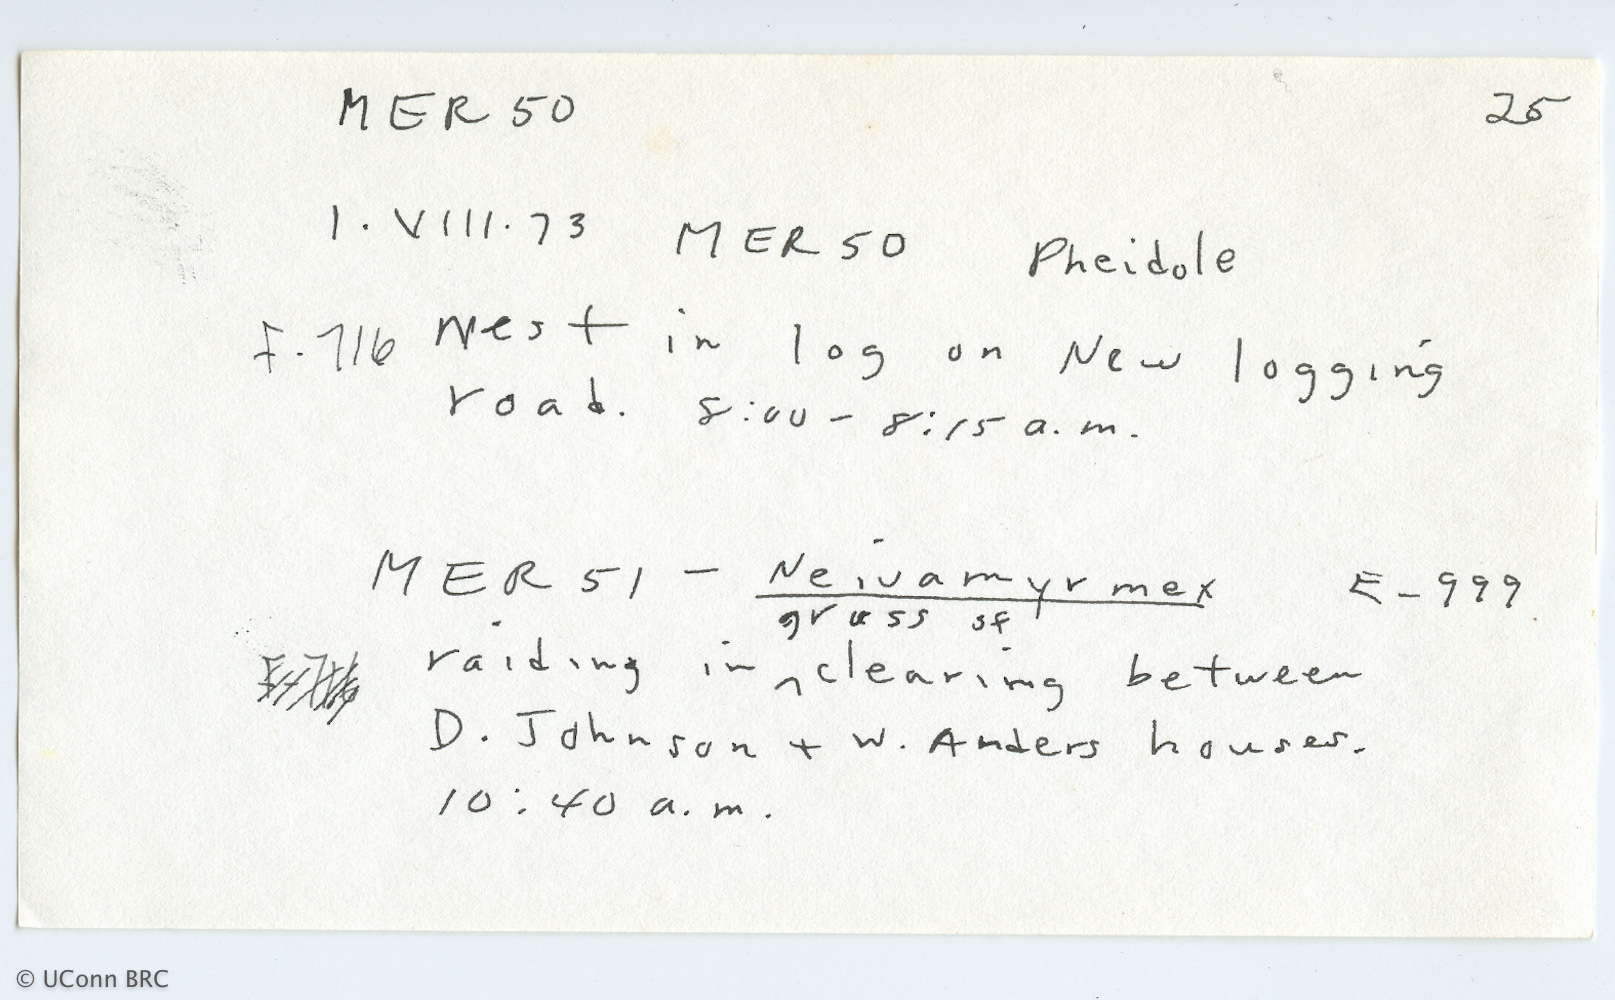 MER 50 25
1.VIII.73 MER 50 Pheidole
F-716 Nest in log on New logging
road. 8:00 - 8:15 a.m.
MER 51 - Neivamyrmex E-999
grass
raiding in ^ clearing between
D. Johnson + W. Anders houses.
10:40 a.m.
© UConn BRC